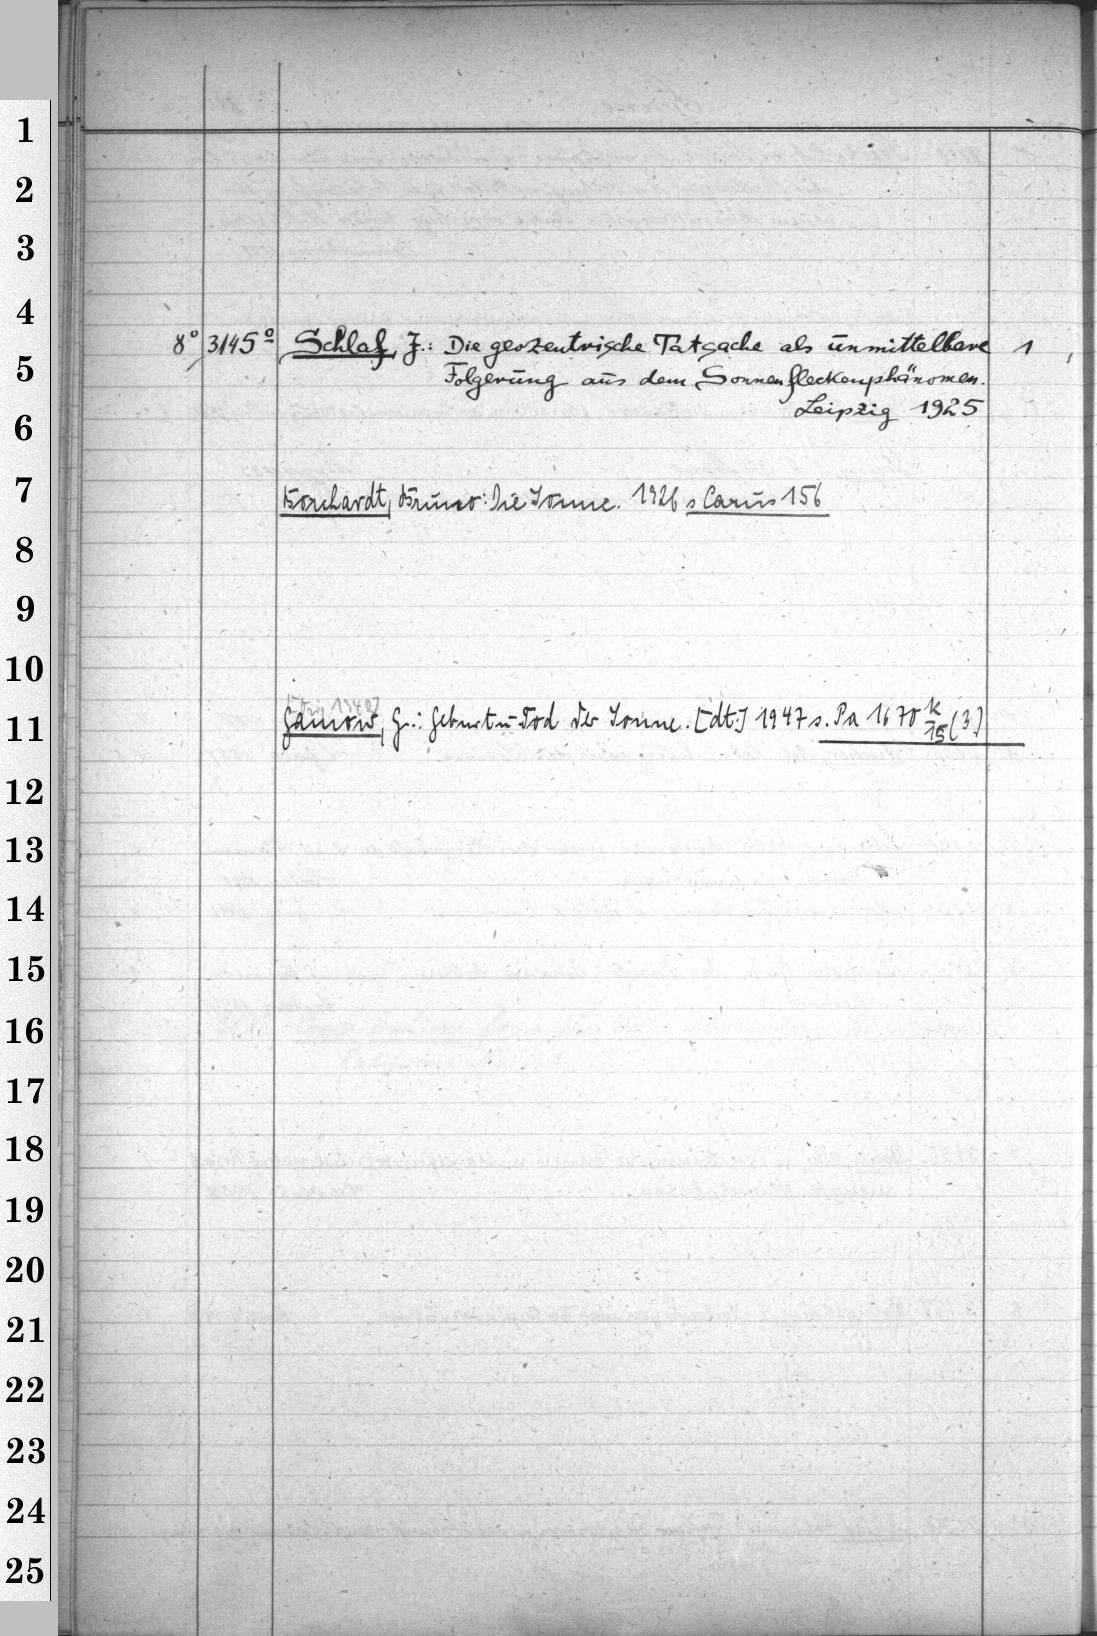 1
2
3
4
8° 3145° Schlaf, J.: Die geozentrische Tatsache als unmittelbare 1
5
Folgerung aus dem Sonnenfleckenphänomen.
Leipzig 1925
6
7
Borchardt, Bruno: Die Sonne. 1926 s Carus 156
8
9
10
11
Gamow, G.: Geburt u Tod der Sonne. [dt.] 1947 s. Pa 1670 k/15 (3.)
12
13
14
15
16
17
18
19
20
21
22
23
24
25